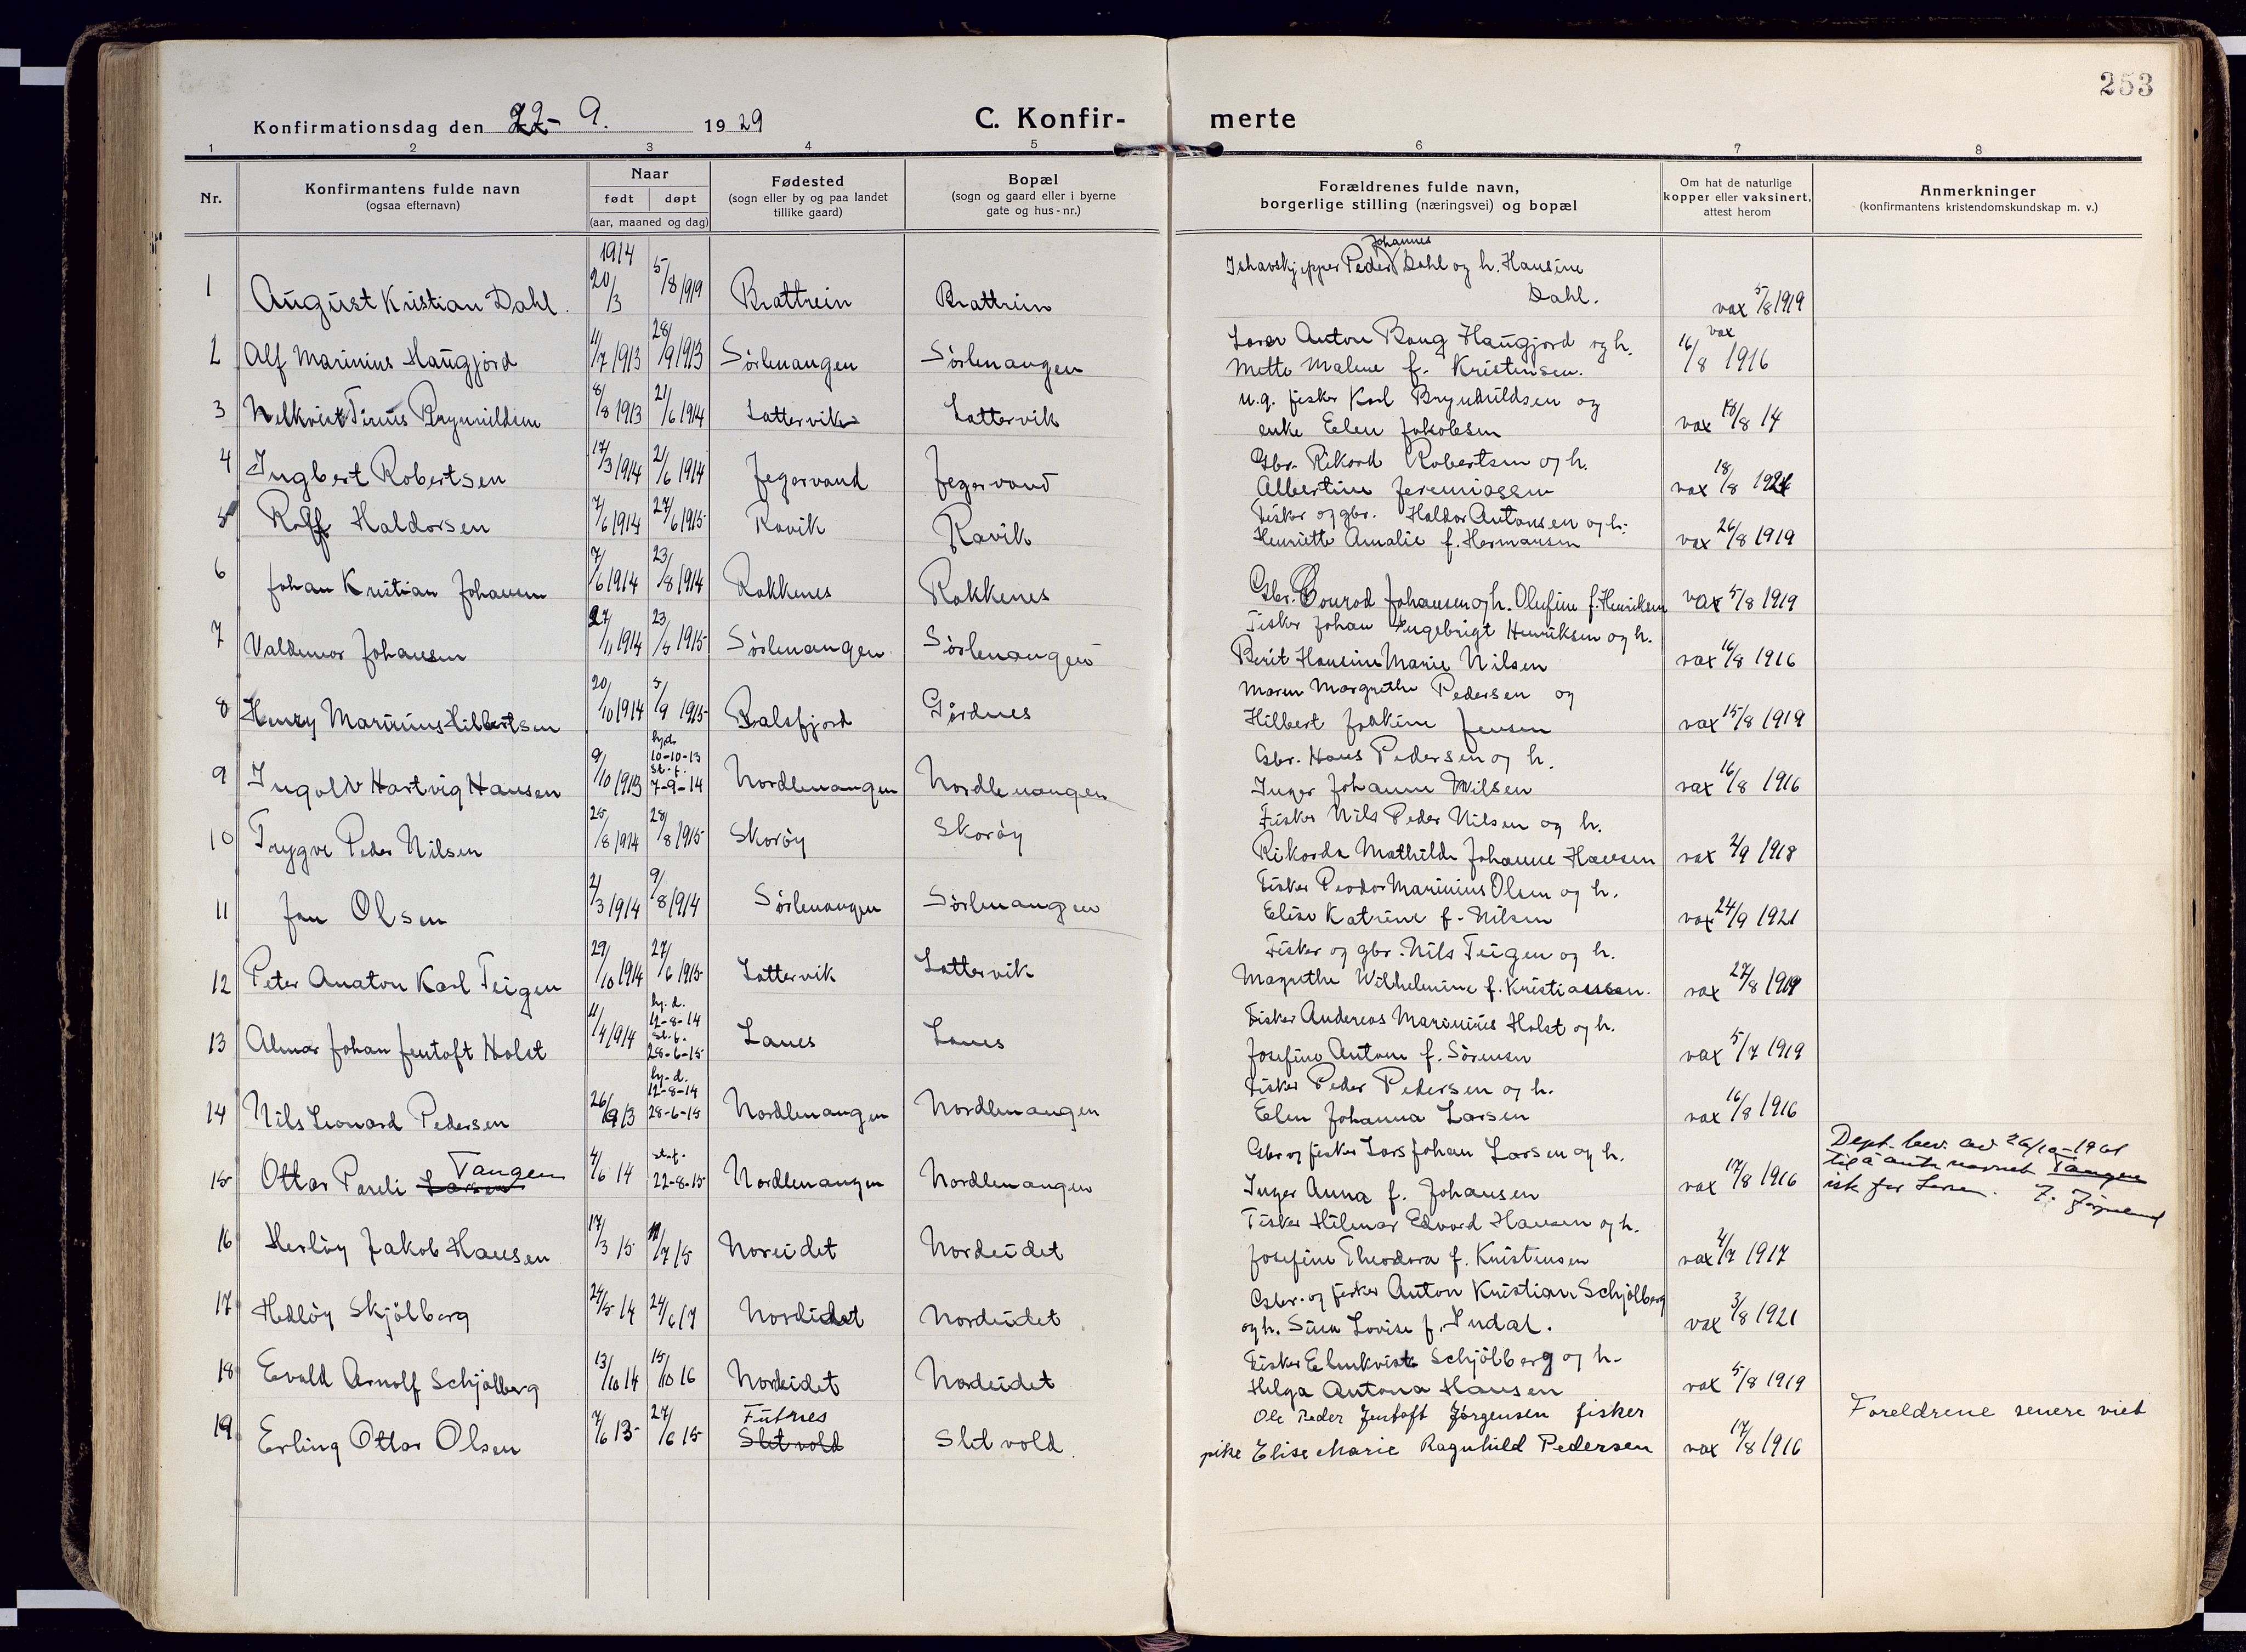 253
Konfirmationsdag den 22-9. 1929
C. Konfir-merte
1 2 3 4 5 6 7 8
Nr.
Konfirmantens fulde navn
(ogsaa efternavn)
Naar
født døpt
(aar, maaned og dag)
Fødested
(sogn eller by og paa landet
tillike gaard)
Bopæl
(sogn og gaard eller i byerne
gate og hus-nr.)
Forældrenes fulde navn,
borgerlige stilling (næringsvei) og bopæl
Om hat de naturlige
kopper eller vaksinert,
attest herom
Anmerkninger
(konfirmantens kristendomskundskap m. v.)
1 August Kristian Dahl. 1914 20/3 5/8 1919 Brattrein Brattrein
Ishavskjipper Peder Johannes Dahl og h. Hansine
Dahl. vax 5/8 1919
2 Alf Marinius Haugjord 11/7 1913 28/9 1913 Sörlenangen Sörlenangen
Anton Bang Haugjord og h.
Mette Malene f. Kristensen. vax 16/8 1916
3 Brynildsen 8/8 1913 21/6 1914 Lattervik Lattervik
u.g. fisker Karl Brynhildsen og
enke Elen Jakobsen vax 18/8 14
4 Ingbert Robertsen 17/3 1914 21/6 1914 Jegervand Jegervand
Gbr. Rikard Robertsen og h.
Albertine Jeremiassen vax 18/8
5 Rolf Haldorsen 7/6 1914 27/6 1915 Ravik Ravik
Fisker og gbr. Haldor Antonsen og h.
Henriette Amalie f. Hermansen vax 26/8 1919
6 Johan Kristian Johansen 7/6 1914 23/8 1914 Rakkenes Rakkenes
Gbr. Conrad Johansen og h. Olufine f. Henriksen vax 5/8 1919
7 Valdemar Johansen 27/1 1914 23/5 1915 Sörlenangen Sörlenangen
Fisker Johan Ingebrigt Henriksen og h.
Berit Hansine Marie Nilsen vax 16/8 1916
8 Henry Marinius Hilbertsen 20/10 1914 5/9 1915 Balsfjord Gårdnes
Maren Margrethe Pedersen og
Hilbert Joakim Jensen vax 15/8 1919
9 Ingolv Hartvig Hansen 9/10 1913 hj.d. 10-10-13 st.f. 7-9-14 Nordlenangen Nordlenangen
Gbr. Hans Pedersen og h.
Inger Johanne Nilsen vax 16/8 1916
10 Trygve Peder Nilsen 25/8 1914 28/8 1915 Skoröy Skoröy
Fisker Nils Peder Nilsen og h.
Rikarda Mathilde Johanne Hansen vax 2/9 1918
11 Jan Olsen 21/3 1914 9/8 1914 Sörlenangen Sörlenangen
Fisker Peodor Marinius Olsen og h.
Elise Katrine f. Nilsen vax 24/9 1921
12 Peter Anaton Karl Teigen 29/10 1914 27/6 1915 Lattervik Lattervik
Fisker og gbr. Nils Teigen og h.
Magrethe Wilhelmine f. Kristiansen. vax 27/8 1919
13 Almar Johan Jentoft Holst 11/4 1914 hj.d. 12-8-14 st.f. 28-6-15 Lanes Lanes
Fisker Andereas Marinius Holst og h.
Josefine Antone f. Sörensen vax 5/7 1919
14 Nils Leonard Pedersen 26/9 13 hj-d. 12-8-14 28-6-15 Nordlenangen Nordlenangen
Fisker Peder Pedersen og h.
Elen Johanna Larsen vax 16/8 1916
15 Ottar Pareli Larsen Tangen 4/6 14 st.f. 22-8-15 Nordlenangen Nordlenangen
Gbr og fisker Lars Johan Larsen og h.
Inger Anna f. Johansen vax 17/8 1916
Dept. bev. av 26/10-1961
til å anta navnet Tangen
ist. for Larsen.
16 Herlöy Jakob Hansen 17/3 15 11/7 15 Noreidet Nordeidet
Fisker Hilmar Edvard Hansen og h.
Josefine Theodora f. Kristensen vax 4/7 1917
17 Hedlöy Skjölberg 24/5 14 24/6 17 Nordeidet Nordeidet
Gbr. og fisker Anton Kristian Schjölberg
og h. Sina Lovise f. Indal. vax 3/8 1921
18 Evald Arnolf Schjölberg 13/10 14 15/10 16 Nordeidet Nordeidet
Fisker Elmkvist Schjölberg og h.
Helga Antona Hansen vax 5/8 1919
19 Erling Ottar Olsen 7/6 13 27/6 15 Futnes Sletvold Sletvold.
Ole Peder Jentoft Jørgensen fisker
pike Elise Marie Ragnhild Pedersen vax 17/8 1916
Foreldrene senere viet